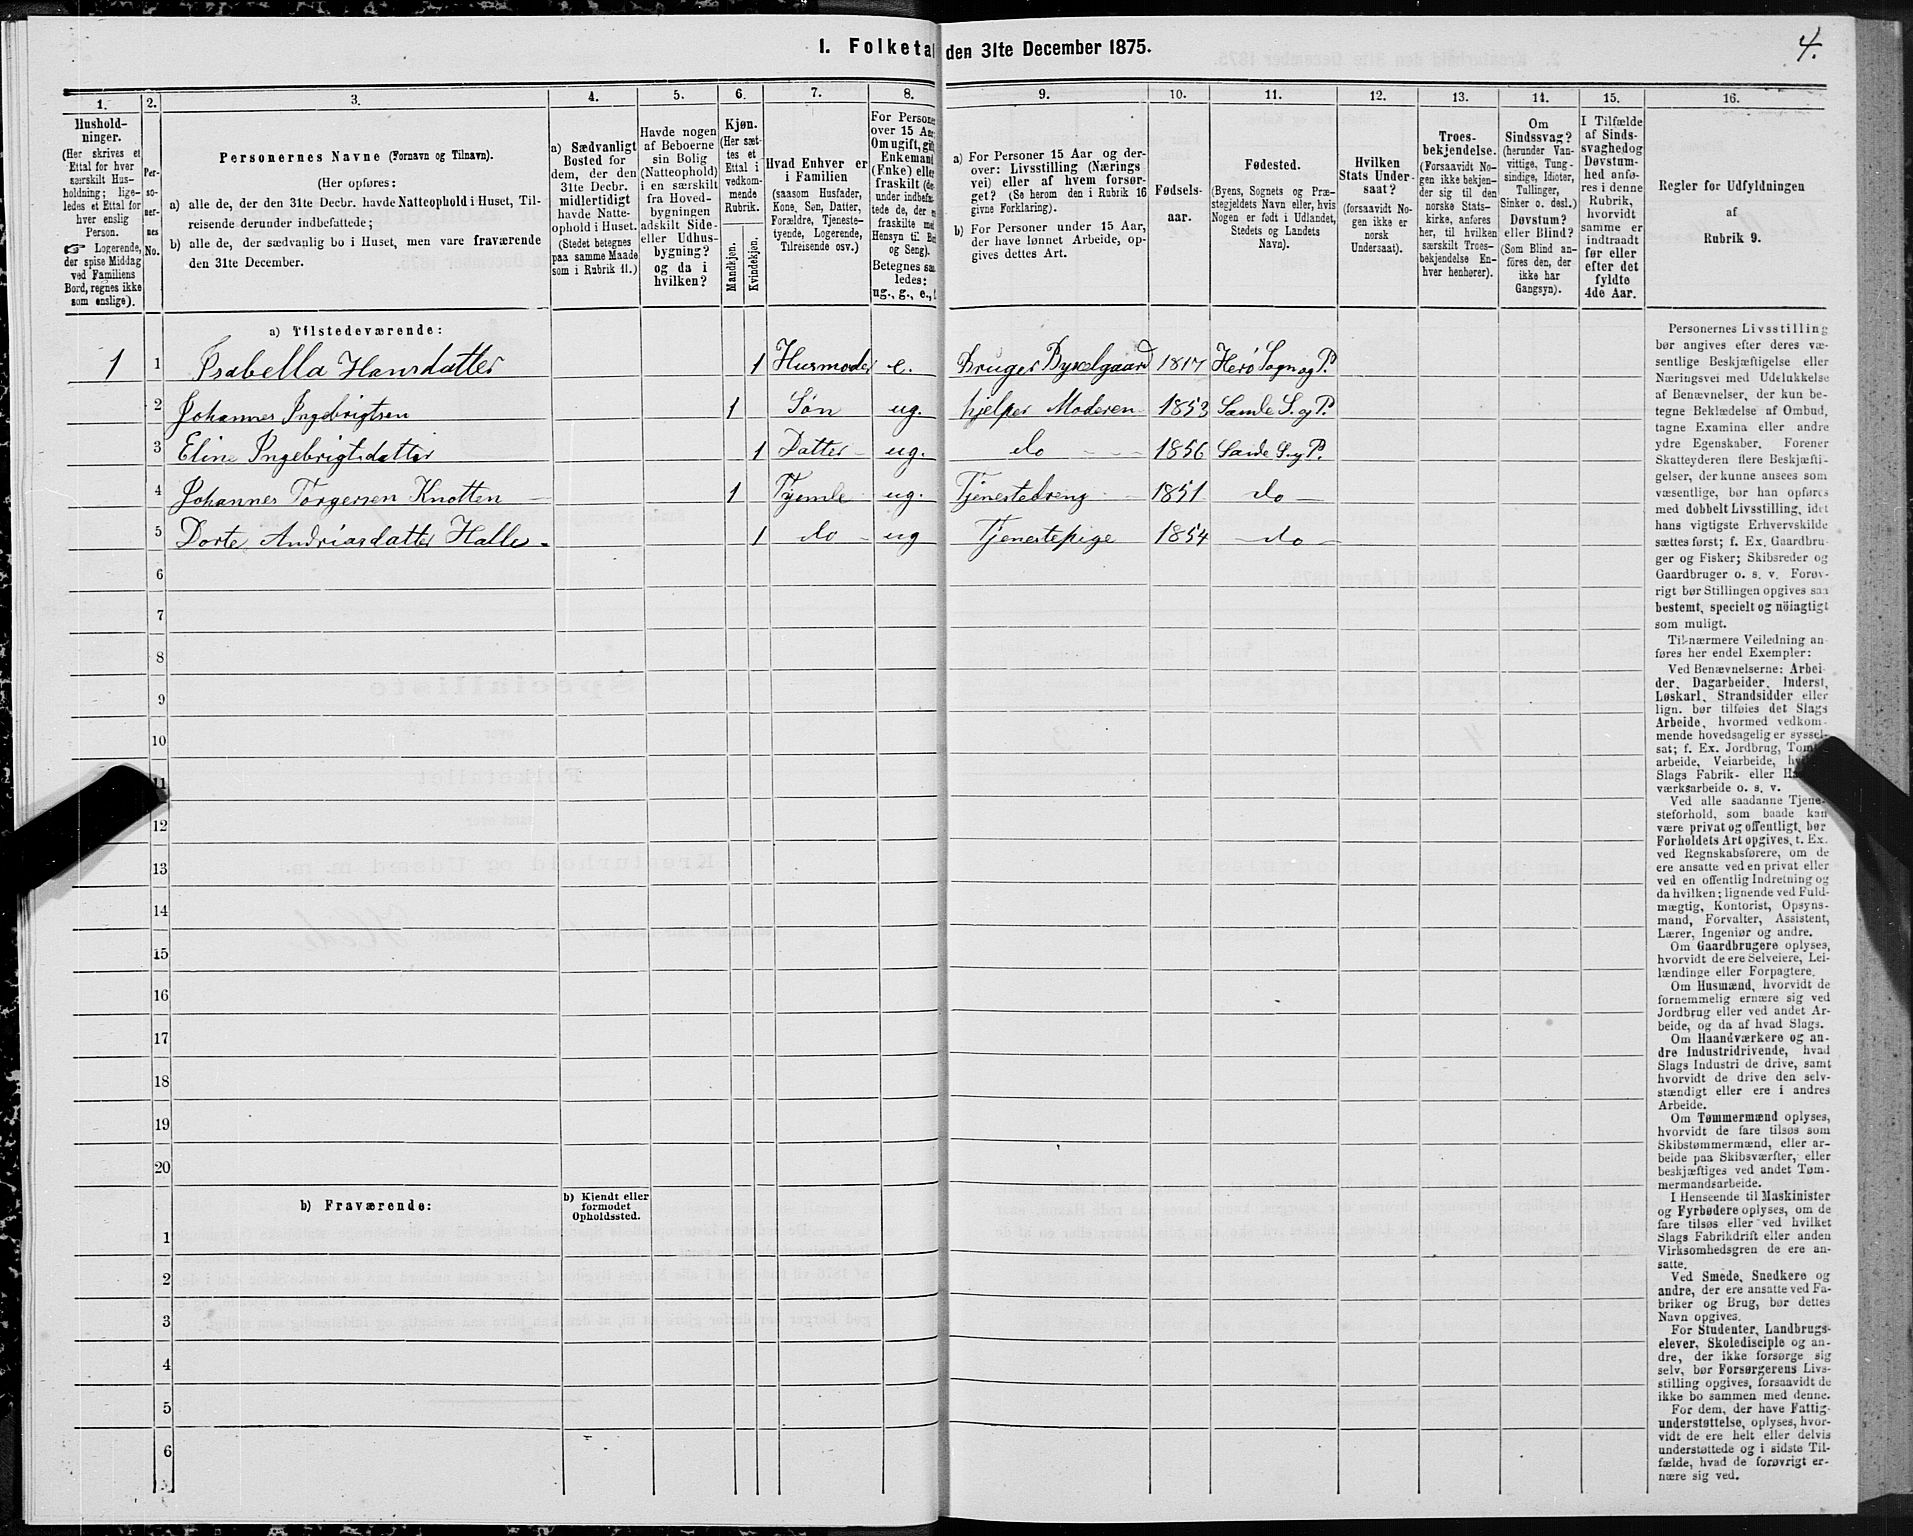 4.
I. Folketal den 31te December 1875.
1. 2. 3. 4. 5. 6. 7. 8. 9. 10. 11. 12. 13. 14. 15. 16.
Hushold-
ninger.
(Her skrives et
Ettal for hver
særskilt Hus-
holdning; lige-
ledes et Ettal for
hver enslig
Person.
☞ Logerende,
der spise Middag
ved Familiens
Bord, regnes ikke
som enslige).
Per-
so-
ner-
nes
No.
Personernes Navne (Fornavn og Tilnavn).
(Her opføres:
a) alle de, der den 31te Decbr. havde Natteophold i Huset, Til-
reisende derunder indbefattede;
b) alle de, der sædvanlig bo i Huset, men vare fraværende
den 31te December.
a) Sædvanligt
Bosted for
dem, der den
31te Decbr.
midlertidigt
havde Natte-
ophold i Huset.
(Stedet betegnes
paa samme Maade
som i Rubrik 11.)
Havde nogen
af Beboerne
sin Bolig
(Natteophold)
i en særskilt
fra Hoved-
bygningen
adskilt Side-
eller Udhus-
bygning?
og da i
hvilken?
Kjøn.
(Her sæt-
tes et
Ettal i
vedkom-
mende
Rubrik.
Mandkjøn.
Kvindekjøn.
Hvad Enhver er
i Familien
(saasom Husfader,
Kone, Søn, Datter,
Forældre, Tjeneste-
tyende, Logerende,
Tilreisende osv.)
For Persone
over 15 Aar
Om ugift, gift
Enkemand
(Enke) eller
fraskilt (de
under indbefat-
tede de, der e
fraskilte med
Hensyn til Bo
og Seng).
Betegnes saa
ledes:
ug., g., e., f
a) For Personer 15 Aar og der-
over: Livsstilling (Nærings
vei) eller af hvem forsør-
get? (Se herom den i Rubrik 16
givne Forklaring).
b) For Personer under 15 Aar,
der have lønnet Arbeide, op-
gives dettes Art.
Fødsels-
aar.
Fødested.
(Byens, Sognets og Præ-
stegjeldets Navn eller, hvis
Nogen er født i Udlandet,
Stedets og Landets
Navn).
Hvilken
Stats Under-
saat?
(forsaavidt No-
gen ikke er
norsk
Undersaat).
Troes-
bekjendelse.
(Forsaavidt No-
gen ikke bekjen-
der sig til den
norske Stats-
kirke, anføres
her, til hvilken
særskilt Troes-
bekjendelse En-
hver henhører).
Om
Sindssvag?
(herunder Van-
vittige, Tung-
sindige, Idioter,
Tullinger,
Sinker o. desl.)
Døvstum?
eller Blind?
(Som Blind an-
føres den, der
ikke har
Gangsyn).
I Tilfælde
af Sinds-
svaghed og
Døvstum-
hed anfø-
res i denne
Rubrik,
hvorvidt
samme er
indtraadt
før eller
efter det
fyldte
4de Aar.
Regler for Udfyldningen
af
Rubrik 9.
a) Tilstedeværende:
1 1 Isabella Hansdatter 1 Husmoder e. Bruger 1817 Herø Sogn og P.
2 Johannes Ingebrigtsen 1 Søn ug. hjelper Moderen 1853 S. og P.
3 Eline Ingebrigtsdatter 1 Datter ug. do 1856 Sande S. og P.
4 Johannes Torgersen Knotten 1 ug. Tjenestedreng 1851 do
5 Dorte Andriasdatter Halle 1 do ug Tjenestepige 1854 do
6
7
8
9
10
11
12
13
14
15
16
17
18
19
20
b) Fraværende:
b) Kjendt eller
formodet
Opholdssted.
1
2
3
4
5
6
Personernes Livsstilling
bør angives efter deres væ-
sentlige Beskjæftigelse eller
Næringsvei med Udelukkelse
af Benævnelser, der kun be-
tegne Beklædelse af Ombud,
tagne Examina eller andre
ydre Egenskaber. Forener
Skatteyderen flere Beskjæfti-
gelser, der kunne ansees som
væsentlige, bør han opføres
med dobbelt Livsstilling, idet
hans vigtigste Erhvervskilde
sættes først; f. Ex. Gaardbru-
ger og Fisker; Skibsreder og
Gaardbruger o. s. v. Forøv-
rigt bør Stillingen opgives saa
bestemt, specielt og nöiagtigt
som muligt.
Til nærmere Veiledning an-
føres her endel Exempler:
Ved Benævnelserne: Arbei-
der, Dagarbeider, Inderst,
Løskarl, Strandsidder eller
lign. bør tilføies det Slags
Arbeide, hvormed vedkom-
mende hovedsagelig er syssel-
sat; f. Ex. Jordbrug, Tomt
arbeide, Veiarbeide,
Slags Fabrik- eller
værksarbeide o. s. v.
Ved alle saadanne Tjene-
steforhold, som baade kan
være privat og offentligt, bør
Forholdets Art opgives, t. Ex.
ved Regnskabsførere, om de
ere ansatte ved en privat eller
ved en offentlig Indretning og
da hvilken; lignende ved Fuld-
mægtig, Kontorist, Opsyns-
mand, Forvalter, Assistent,
Lærer, Ingeniør og andre.
Om Gaardbrugere oplyses,
hvorvidt de ere Selveiere, Lei-
lændinge eller Forpagtere.
Om Husmænd, hvorvidt de
fornemmelig ernære sig ved
Jordbrug eller ved andet Ar-
beide, og da af hvad Slags.
Om Haandværkere og an-
dre Industridrivende, hvad
Slags Industri de drive, samt
hvorvidt de drive den selv-
stændigt eller ere i andres
Arbeide.
Om Tømmermænd oplyses,
hvorvidt de fare tilsøs som
Skibstømmermænd, eller ar-
beide paa Skibsværfter, eller
beskjæftiges ved andet Tøm-
mermandsarbeide.
I Henseende til Maskinister
og Fyrbødere oplyses, om de
fare tilsøs eller ved hvilket
Slags Fabrikdrift eller anden
Virksomhedsgren de ere an-
satte.
Ved Smede, Snedkere og
andre, der ere ansatte ved Fa-
briker og Brug, bør dettes
Navn opgives.
For Studenter, Landbrugs-
elever, Skoledisciple og an-
dre, der ikke forsørge sig
selv, bør Forsørgerens Livs-
stilling opgives, forsaavidt de
ikke bo sammen med denne.
For dem, der have Fattig-
understøttelse, oplyses, hvor-
vidt de ere helt eller delvis
understøttede og i sidste Til-
fælde, hvad de forøvrigt er-
nære sig ved.